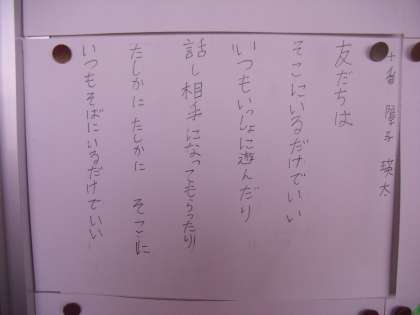 十番 障子 瑛太
友だちは
そこにいるだけでいい
いつもいっしょに遊んだり
話し相手になってもらったり
たしかに たしかに そこに
いつもそばにいるだけでいい